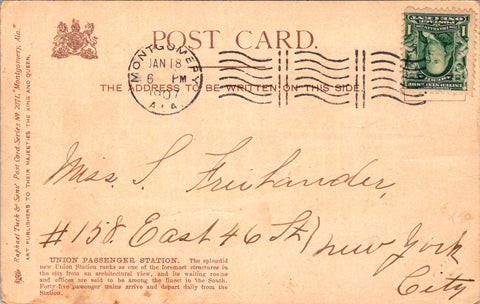 POST CARD.
MONTGOMERY
JAN 18
6 PM
1907
ALA.
THE ADDRESS TO BE WRITTEN ON THIS SIDE
Miss S. Freilander,
#158 East 46 St,
New York
City
UNION PASSENGER STATION. The splendid
new Union Station ranks as one of the foremost structures in
the city from an architectural view, and its waiting rooms
and offices are said to be among the finest in the South.
Forty-five passenger trains arrive and depart daily from the
Station.
Raphael Tuck & Sons' Post Card Series No. 2071, "Montgomery, Ala."
ART PUBLISHERS TO THEIR MAJESTIES THE KING AND QUEEN.